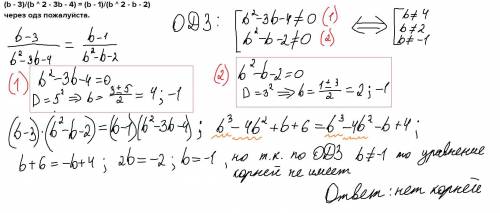 (b - 3)/(b ^ 2 - 3b - 4) = (b - 1)/(b ^ 2 - b - 2)
через одз пожалуйста.
ОДЗ: [ b²-3b-4≠0 (1) ⟺ [ b≠4
b²-b-2≠0 (2) b≠2
b≠-1
(b-3)/(b²-3b-4) = (b-1)/(b²-b-2)
(1) b²-3b-4=0
D=5² ⟹ b=(3±5)/2=4; -1
(2) b²-b-2=0
D=3² ⟹ b=(1±3)/2=2; -1
(b-3)·(b²-b-2)=(b-1)(b²-3b-4); b³-4b²+b+6=b³-4b²-b+4;
b+6=-b+4; 2b=-2; b=-1, но т.к. по ОДЗ b≠-1 то уравнение
корней не имеет
Ответ: нет корней